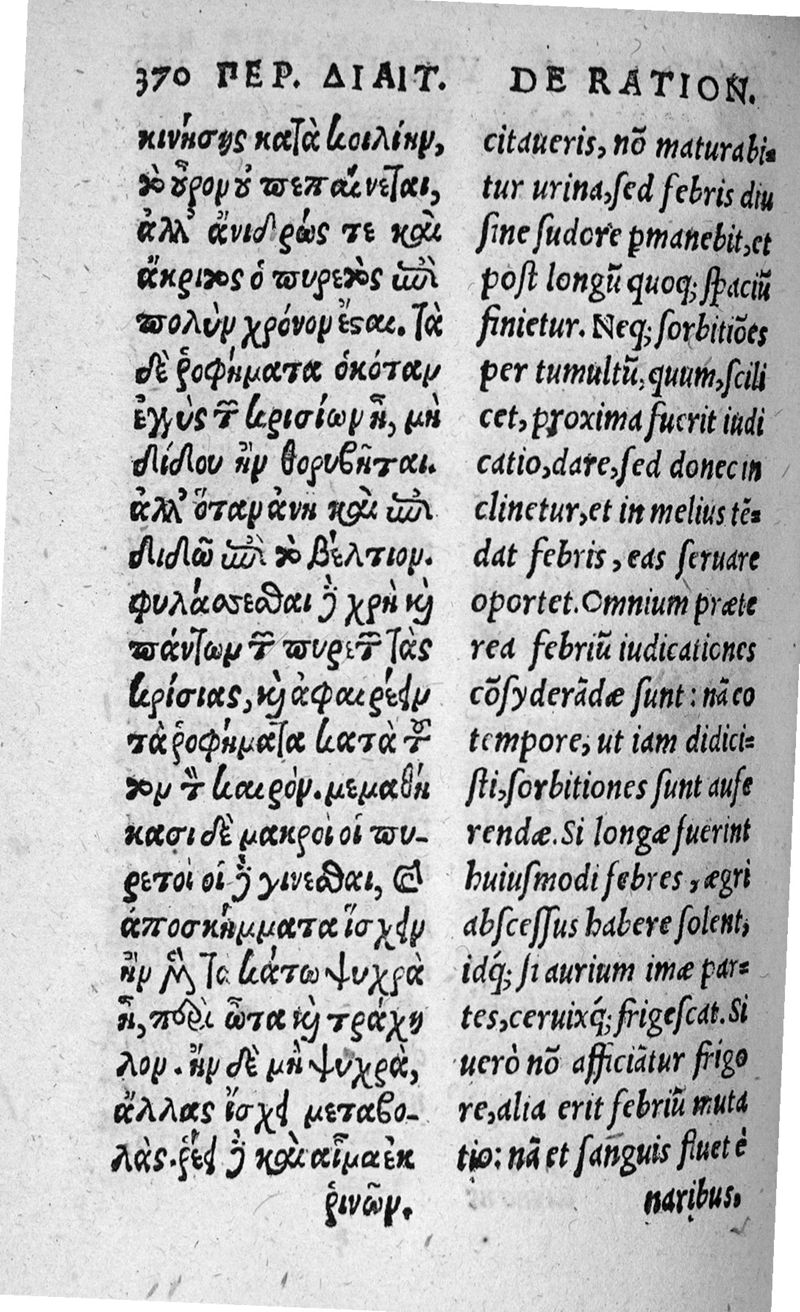 370 ΠΕΡ. ΔΙΑΙΤ.
κινήσῃς κατὰ κοιλίην,
τὸ οὖρον οὐ πεπαίνεται,
ἀλλ' ἄνιδρώς τε καὶ
ἄκριτος ὁ πυρετὸς ἐπὶ
πολὺν χρόνον ἔσται. Τὰ
δὲ ῥοφήματα ὁκόταν
ἐγγὺς τῶν κρισίων ᾖ, μὴ
δίδου ἢν θορυβῆται.
ἀλλ' ὅταν ἀνῇ καὶ ἐπι
διδῶ ἐπὶ τὸ βέλτιον.
φυλάσσεσθαι δὲ χρὴ καὶ
πάντων τῶν πυρετῶν τὰς
κρίσιας, καὶ ἀφαιρέειν
τὰ ῥοφήματα κατὰ τοῦ
τον τὸν καιρόν. μεμαθή
κασι δὲ μακροὶ οἱ πυ-
ρετοὶ οἵδε γίνεσθαι, καὶ
ἀποσκήμματα ἴσχειν
ἢν μὲν τὰ κάτω ψυχρὰ
ᾖ, περὶ ὦτα καὶ τράχη
λον. ἢν δὲ μὴ ψυχρὰ,
ἄλλας ἴσχει μεταβο-
λάς. ῥεῖ δὲ καὶ αἷμα ἐκ
ῥινῶν.
DE RATION.
citaueris, nō maturabi-
tur urina, sed febris diu
sine sudore ꝑmanebit, et
post longũ quoq; spaciũ
finietur. Neq; sorbitiões
per tumultũ, quum, scili
cet, proxima fuerit iudi
catio, dare, sed donec in
clinetur, et in melius tẽ-
dat febris, eas seruare
oportet. Omnium præte
rea febriũ iudicationes
cõsyderãdæ sunt: nã eo
tempore, ut iam didici-
sti, sorbitiones sunt aufe
rendæ. Si longæ fuerint
huiusmodi febres, ægri
abscessus habere solent,
idq́; si aurium imæ par-
tes, ceruixq́; frigescat. Si
uerò nõ afficiãtur frigo
re, alia erit febriũ muta
tio: nã et sanguis fluet è
naribus.